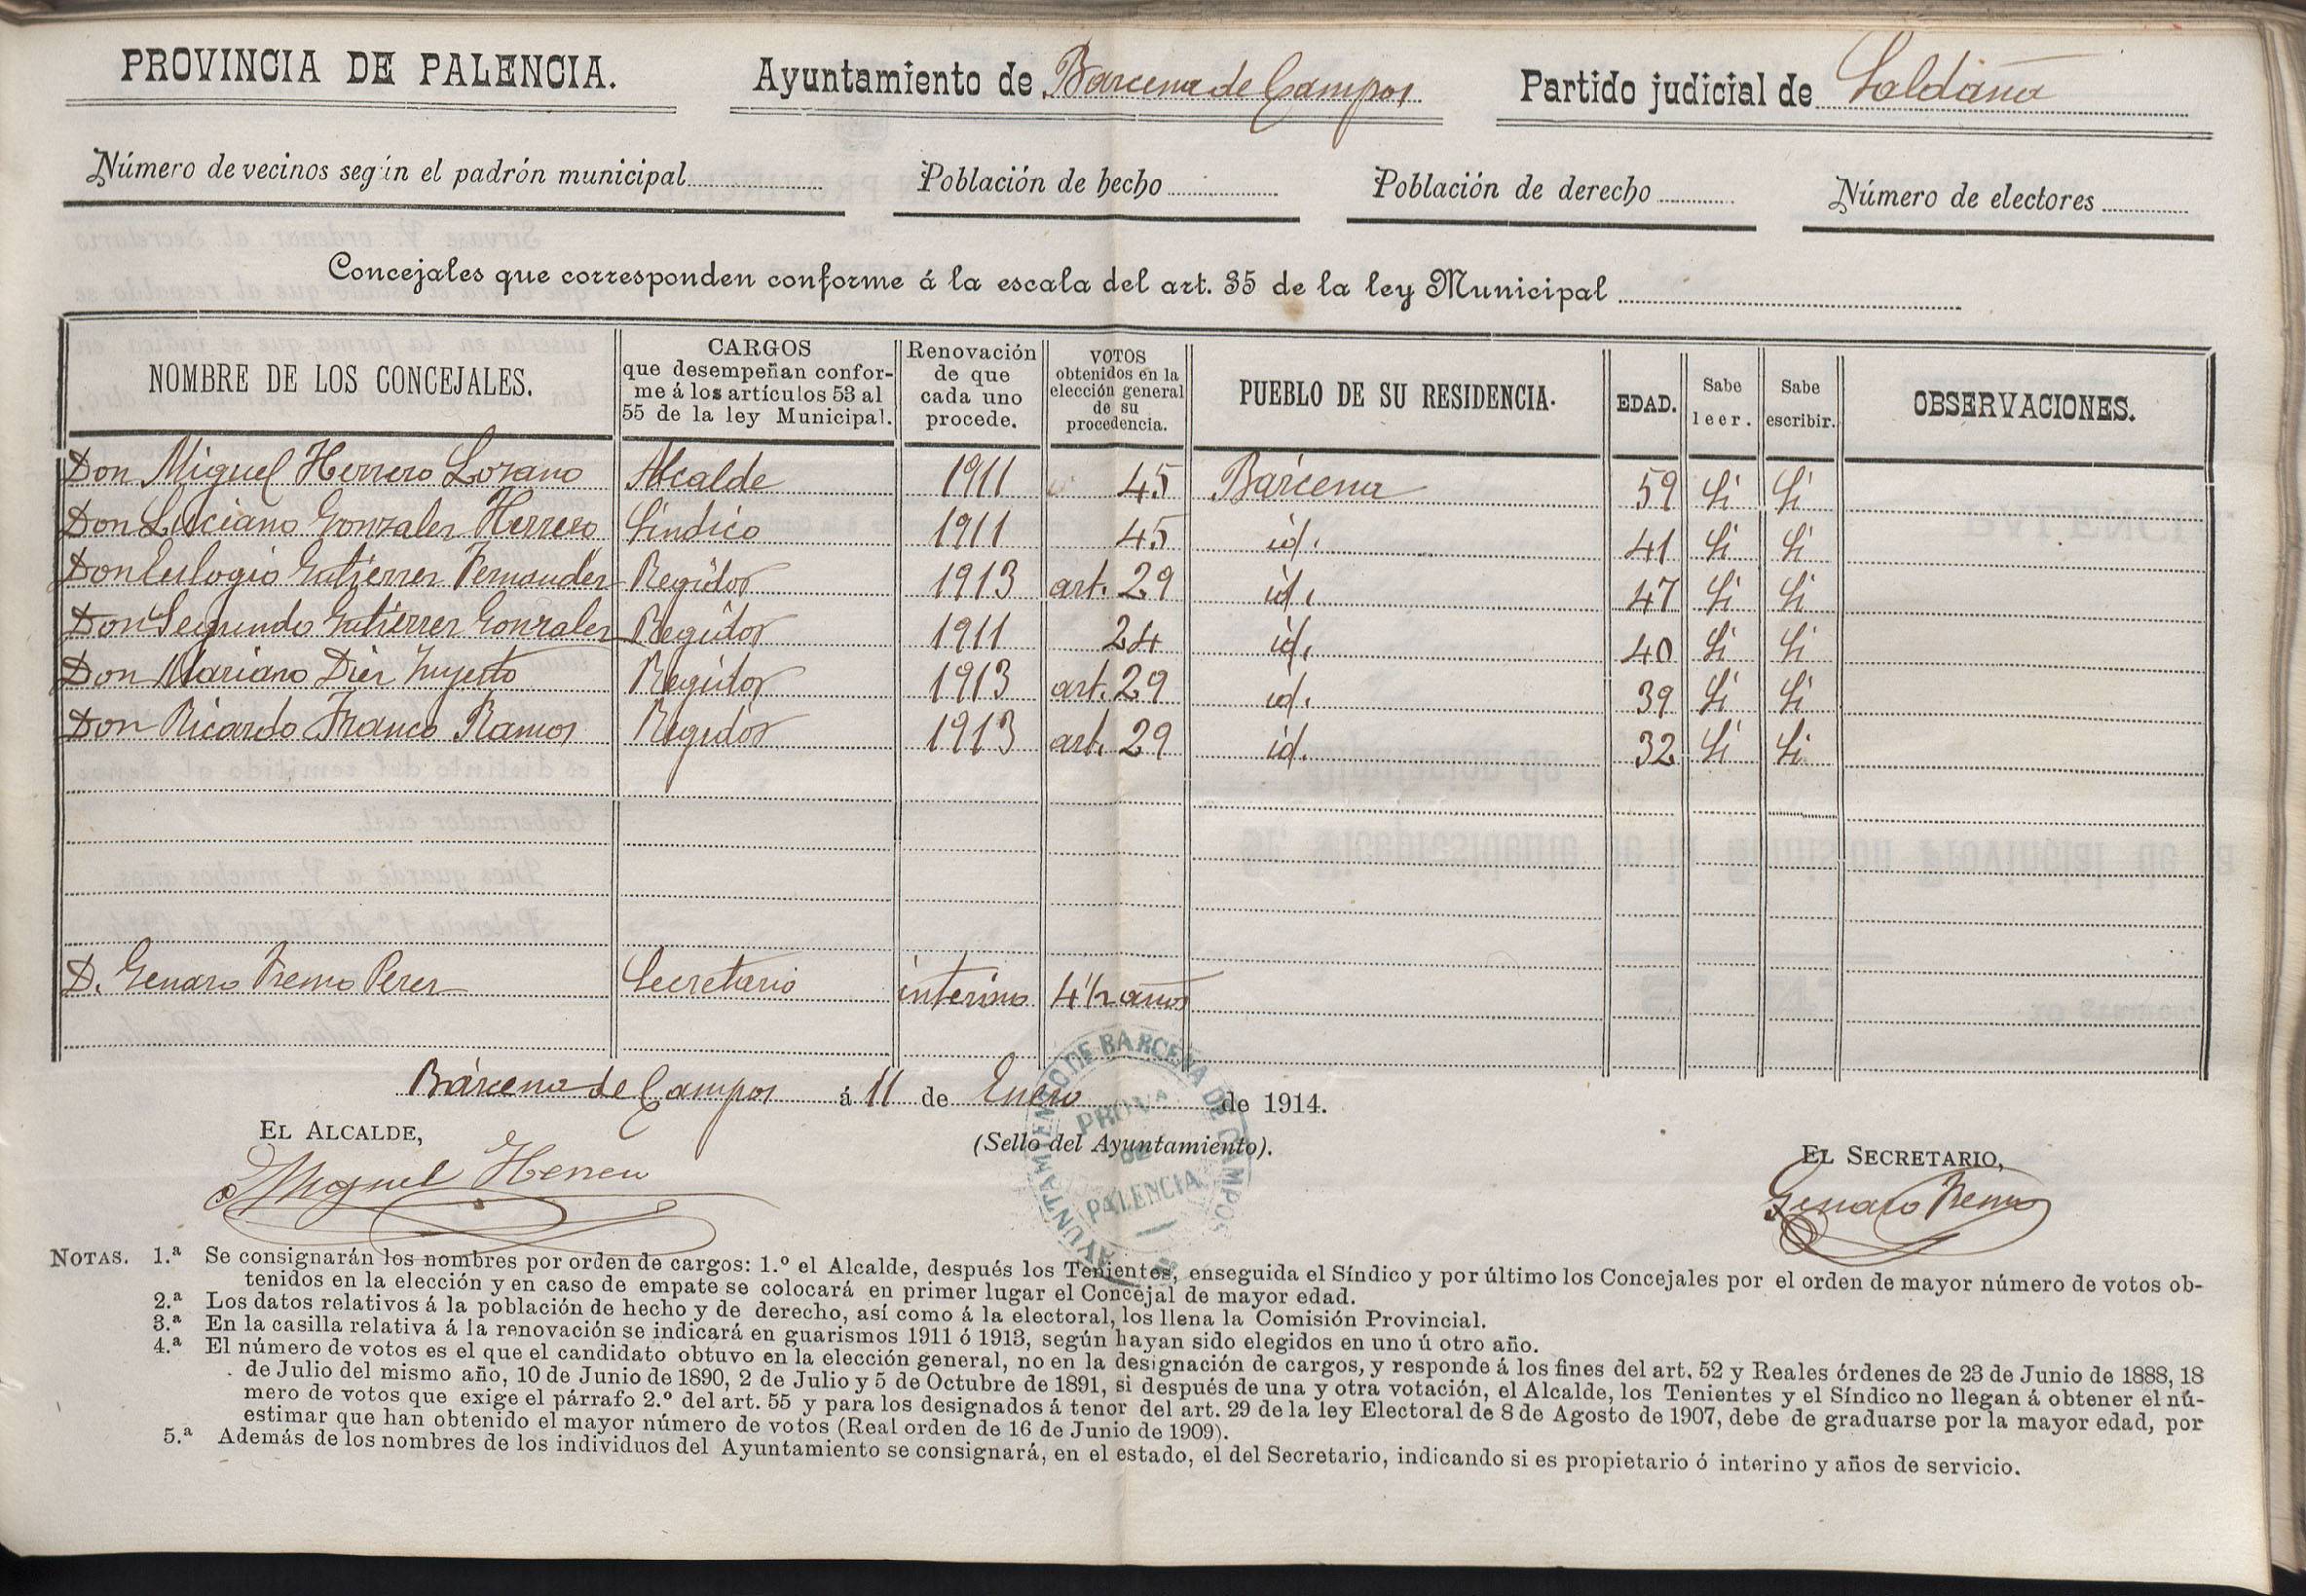 PROVINCIA DE PALENCIA. Ayuntamiento de Barcena de Campos Partido judicial de Saldaña
Número de vecinos según el padrón municipal Población de hecho Población de derecho Número de electores
Concejales que corresponden conforme á la escala del art. 35 de la ley Municipal
NOMBRE DE LOS CONCEJALES. CARGOS que desempeñan confor- me á los artículos 53 al 55 de la ley Municipal. Renovación de que cada uno procede. VOTOS obtenidos en la elección general de su procedencia. PUEBLO DE SU RESIDENCIA. EDAD. Sabe leer. Sabe escribir. OBSERVACIONES.
Don Miguel Herrero Lozano Alcalde 1911 45 Bárcena 59 Si Si
Don Luciano Gonzalez Herrero Sindico 1911 45 id. 41 Si Si
Don Eulogio Gutierrez Fernandez Regidor 1913 art. 29 id. 47 Si Si
Don Segundo Gutierrez Gonzalez Regidor 1911 24 id. 40 Si Si
Don Mariano Diez Regidor 1913 art. 29 id. 39 Si Si
Don Ricardo Franco Ramos Regidor 1913 art. 29 id. 32 Si Si
D. Genaro Perez Secretario interino 4 1/2 años
Bárcena de Campos á 11 de Enero de 1914.
EL ALCALDE,
(Sello del Ayuntamiento).
EL SECRETARIO,
Miguel Herrero
Genaro
AYUNTAMIENTO DE BARCENA DE CAMPOS
PROVª
DE
PALENCIA
NOTAS. 1.ª Se consignarán los nombres por orden de cargos: 1.º el Alcalde, después los Tenientes, enseguida el Síndico y por último los Concejales por el orden de mayor número de votos ob-
tenidos en la elección y en caso de empate se colocará en primer lugar el Concejal de mayor edad.
2.ª Los datos relativos á la población de hecho y de derecho, así como á la electoral, los llena la Comisión Provincial.
3.ª En la casilla relativa á la renovación se indicará en guarismos 1911 ó 1913, según hayan sido elegidos en uno ú otro año.
4.ª El número de votos es el que el candidato obtuvo en la elección general, no en la designación de cargos, y responde á los fines del art. 52 y Reales órdenes de 23 de Junio de 1888, 18
de Julio del mismo año, 10 de Junio de 1890, 2 de Julio y 5 de Octubre de 1891, si después de una y otra votación, el Alcalde, los Tenientes y el Síndico no llegan á obtener el nú-
mero de votos que exige el párrafo 2.º del art. 55 y para los designados á tenor del art. 29 de la ley Electoral de 8 de Agosto de 1907, debe de graduarse por la mayor edad, por
estimar que han obtenido el mayor número de votos (Real orden de 16 de Junio de 1909).
5.ª Además de los nombres de los individuos del Ayuntamiento se consignará, en el estado, el del Secretario, indicando si es propietario ó interino y años de servicio.